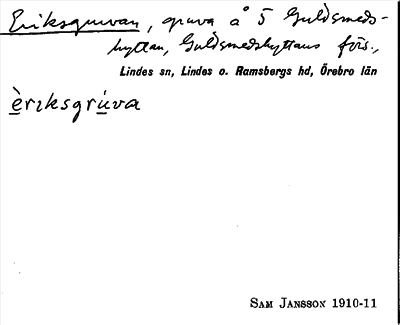 Eriksgruvan, gruva å 5 Guldsmeds-
hyttan, Guldsmedshyttans förs.,
Lindes sn, Lindes o. Ramsbergs hd, Örebro län
èrıksgrùva
Sam Jansson 1910-11